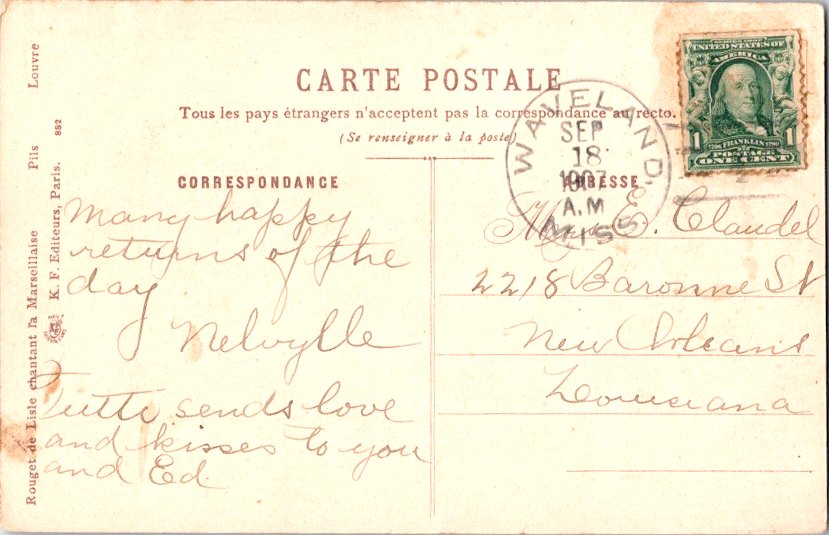 CARTE POSTALE
Tous les pays étrangers n'acceptent pas la correspondance au recto.
(Se renseigner à la poste)
CORRESPONDANCE
ADRESSE
Many happy
returns of the
day
Nelvylle
Tutti sends love
and kisses to you
and Ed.
Mrs E. Claudel
2218 Baronne St
New Orleans
Louisiana
WAVELAND,
SEP
18
1907
A.M
MISS.
UNITED STATES OF
AMERICA
1
1
1706 FRANKLIN 1790
POSTAGE
ONE CENT
Rouget de Lisle chantant la Marseillaise Pils Louvre
K. F. Editeurs, Paris. 882